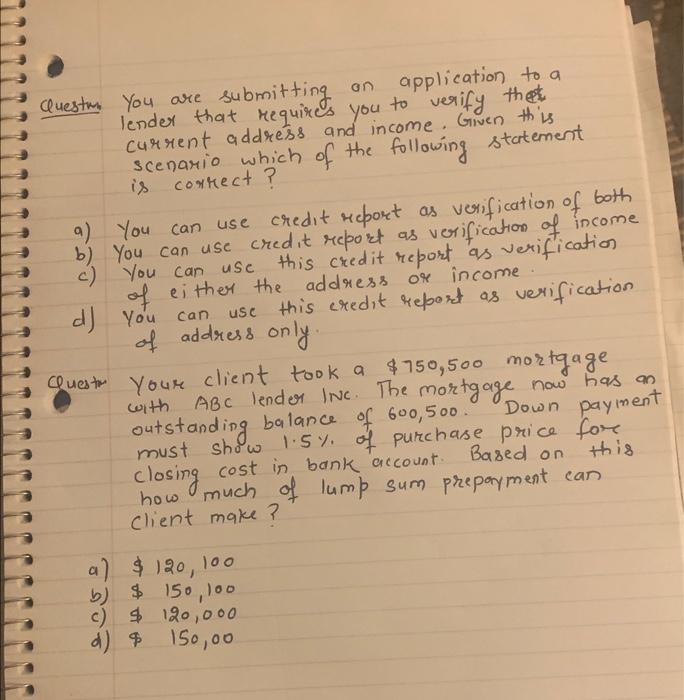 Question You are submitting an application to a
lender that requires you to verify that
current address and income. Given this
scenario which of the following statement
is correct?
a) You can use credit report as verification of both
b) You can use credit report as verification of income
c) You can use this credit report as verification
of either the address or income.
d) You can use this credit report as verification
of address only.
Question Your client took a $750,500 mortgage
with ABC lender INC. The mortgage now has an
outstanding balance of 600,500. Down payment
must show 1.5% of purchase price fore
closing cost in bank account. Based on this
how much of lump sum prepayment can
client make?
a) $ 120,100
b) $ 150,100
c) $ 120,000
d) $ 150,00